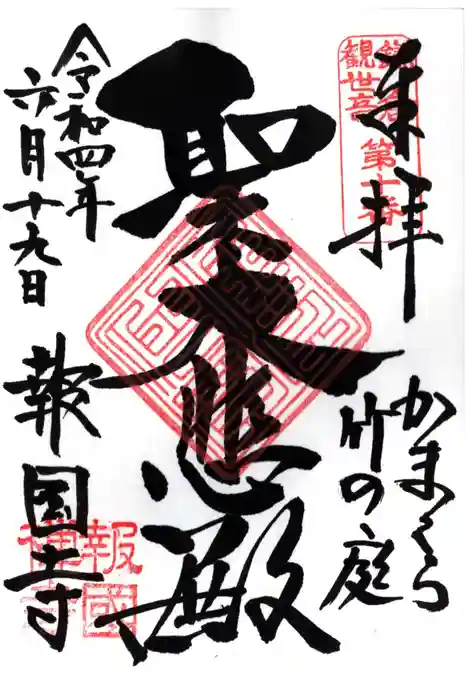 奉拝
鎌倉
観世音 第十番
かまくら
竹の庭
聖大悲殿
令和四年
六月十九日
報国寺
報國
禅寺